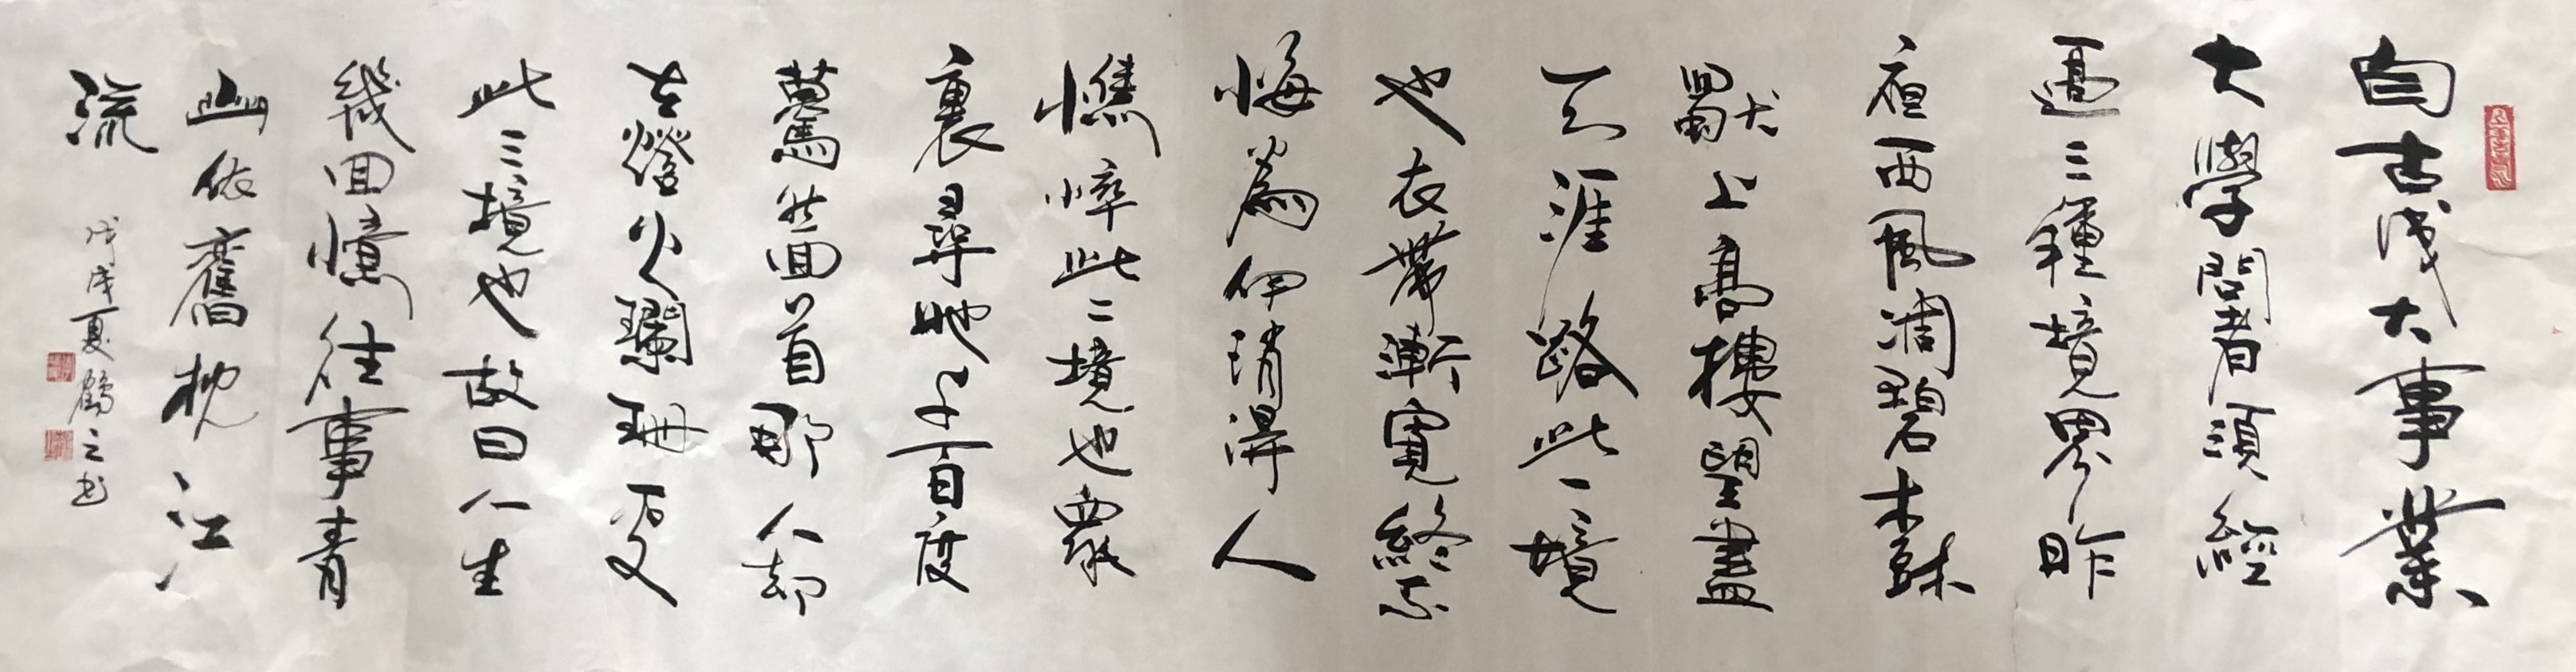 自古成大事業
大學問者須經
過三種境界昨
夜西風凋碧木縣
獻上高樓望盡
天涯路此一境
也衣帶漸寬終不
悔為伊消得人
憔悴此二境也眾
裏尋她千百度
驀然回首那人却
在燈火闌珊處
此三境也故曰人生
幾回憶往事青
山依舊枕江
流
戊戌夏鶴之书